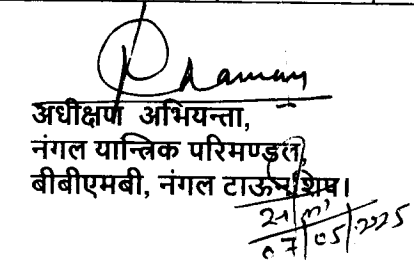 अधीक्षण अभियन्ता,
नंगल यान्त्रिक परिमण्डल,
बीबीएमबी, नंगल टाऊनशिप।
07/05/2025